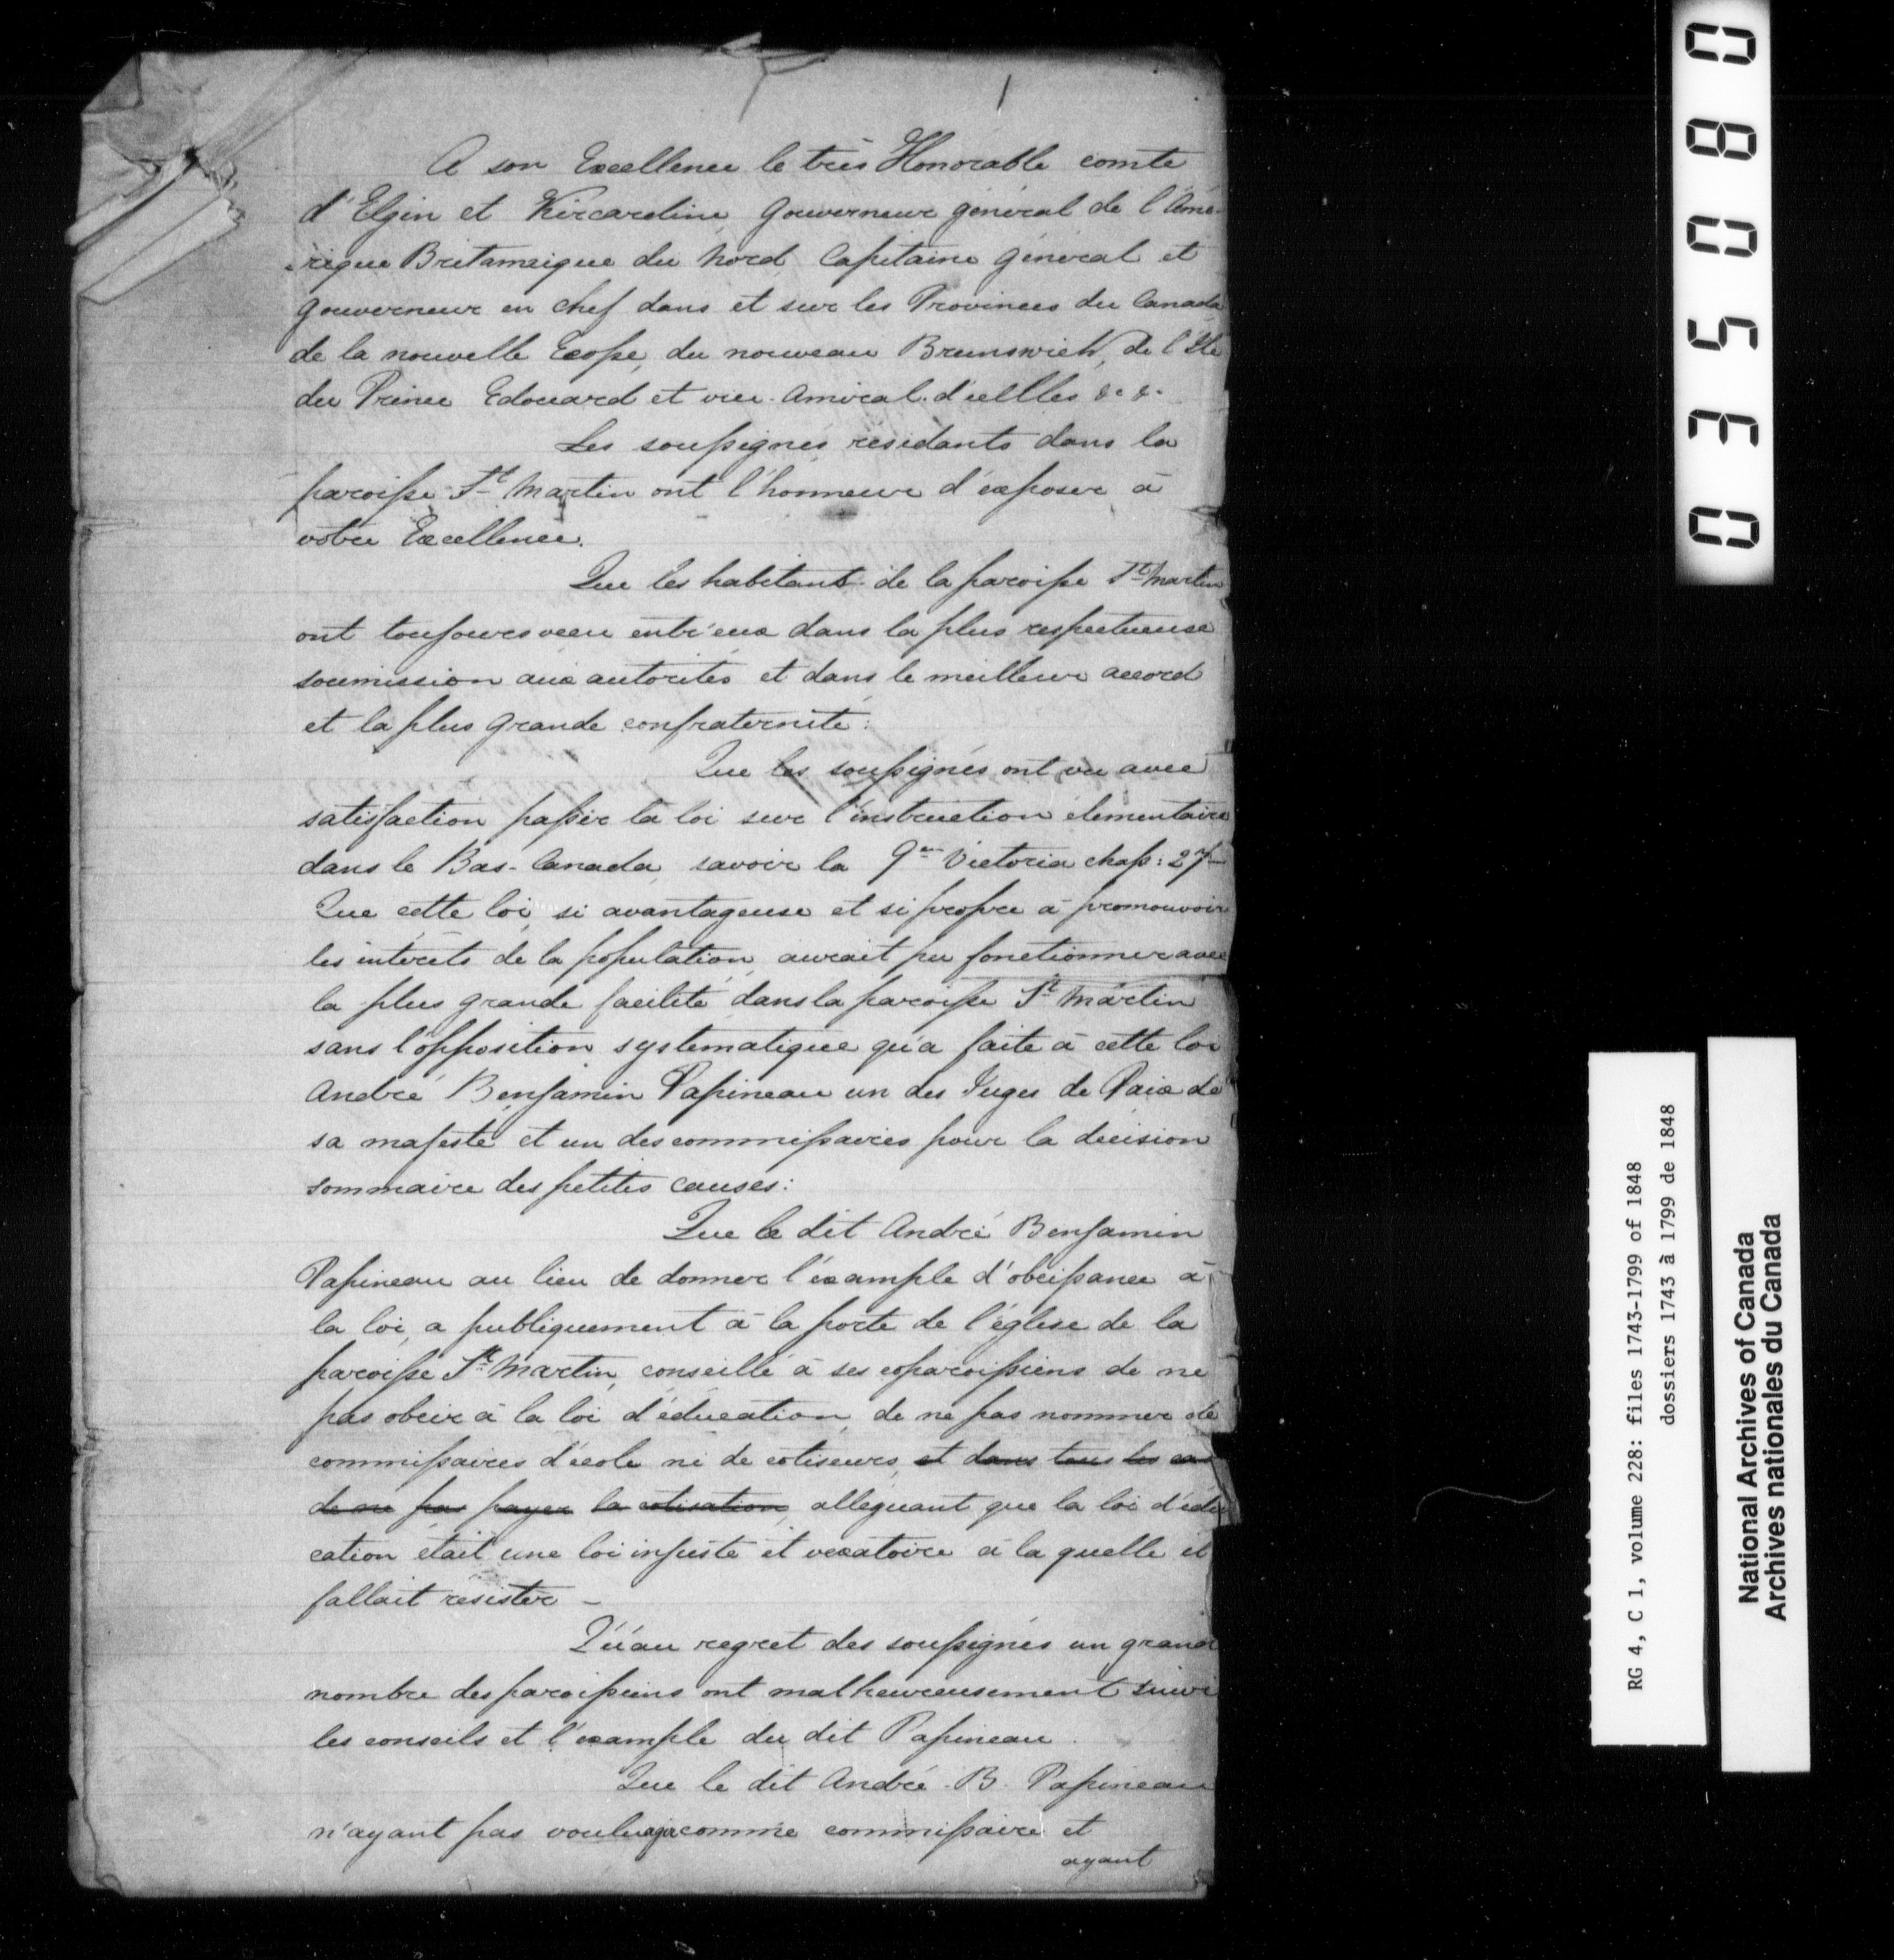 A son Excellence le très Honorable comte
d'Elgin et Kincardine, Gouverneur général de l'Amé-
rique Britannique du Nord, Capitaine général et
gouverneur en chef dans et sur les Provinces du Canada
de la nouvelle Ecosse, du nouveau Brunswick, de l'Ile
du Prince Edouard et vice-amiral d'icelles &c &c
Les soussignés résidants dans la
paroisse St Martin ont l'honneur d'exposer à
votre Excellence.
Que les habitants de la paroisse St Martin
ont toujours vécu entr'eux dans la plus respectueuse
soumission aux autorités et dans le meilleur accord
et la plus grande confraternité:
Que les soussignés ont vu avec
satisfaction passer la loi sur l'instruction élémentaire
dans le Bas-Canada, savoir la 9me Victoria chap: 27
Que cette loi, si avantageuse et si propre à promouvoir
les intérêts de la population, aurait pu fonctionner avec
la plus grande facilité dans la paroisse St Martin
sans l'opposition systematique qu'a faite à cette loi
André Benjamin Papineau un des Juges de Paix de
sa majesté et un des commissaires pour la décision
sommaire des petites causes:
Que le dit André Benjamin
Papineau au lieu de donner l'example d'obéissance à
la loi, a publiquement à la porte de l'église de la
paroisse St Martin, conseillé à ses coparoissiens de ne
pas obéir à la loi d'éducation, de ne pas nommer de
commissaires d'école ni de cotiseurs, et dans tous les cas
de ne pas payer la cotisation, alléguant que la loi d'édu
cation était une loi injuste et vexatoire à la quelle il
fallait résister -
Qu'au regret des soussignés un grand
nombre des paroissiens ont malheureusement suivi
les conseils et l'example du dit Papineau.
Que le dit André B. Papineau
n'ayant pas voulu agir comme commissaire et
ayant
035080
RG 4, C 1, volume 228: files 1743-1799 of 1848
dossiers 1743 à 1799 de 1848
National Archives of Canada
Archives nationales du Canada